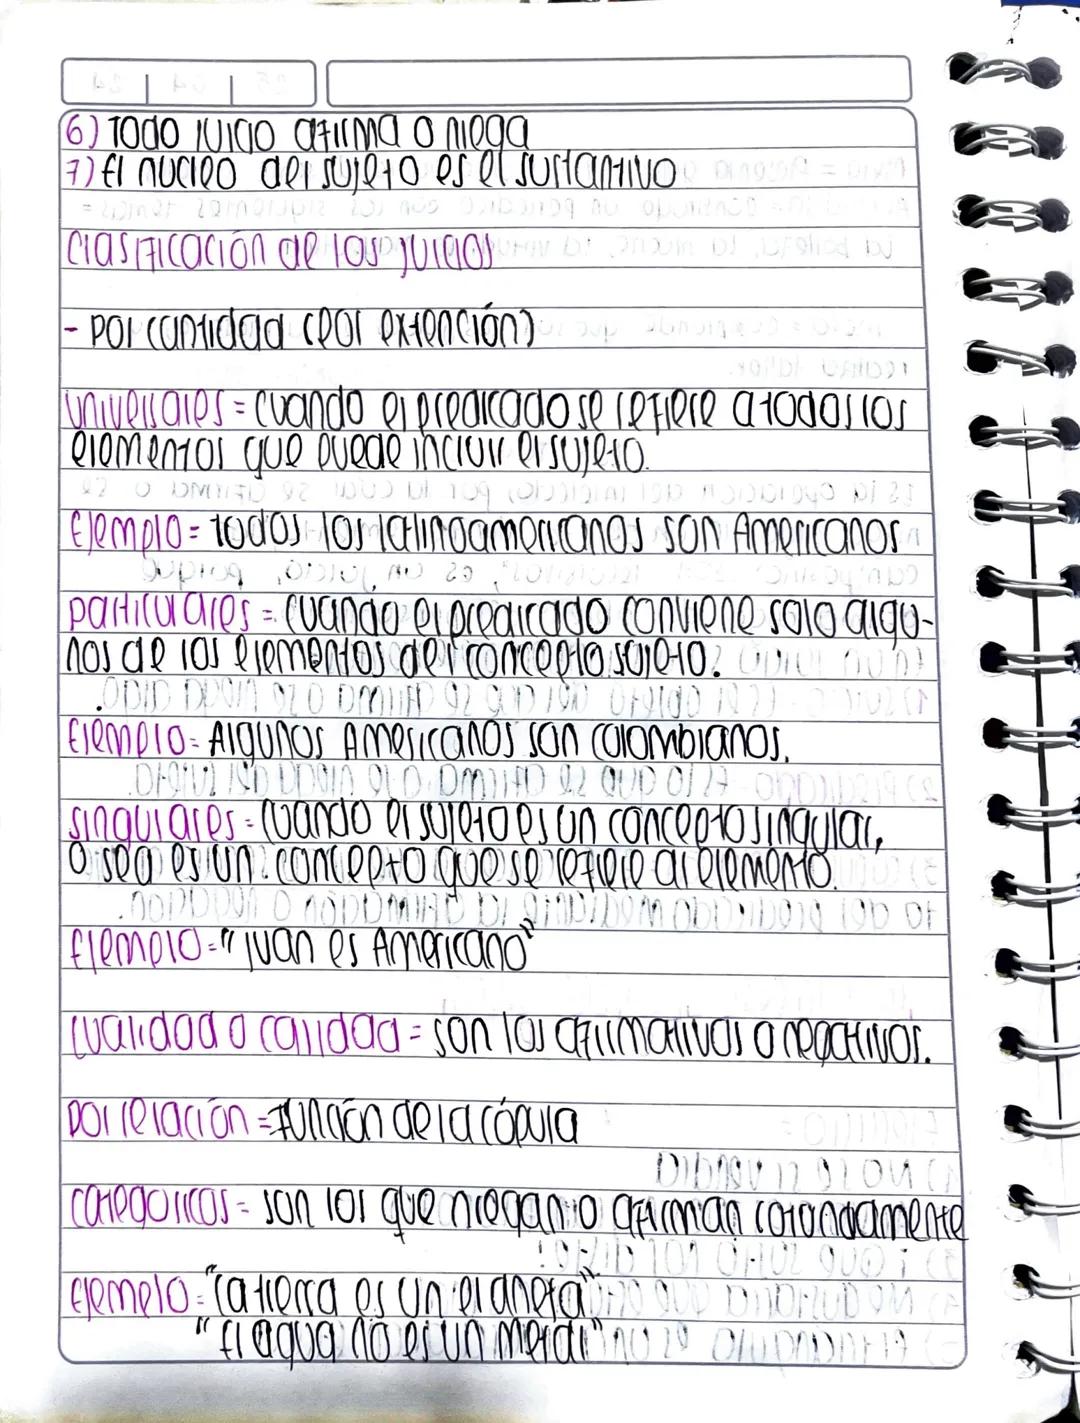 6) Todo juicio afirma o niega
7) El nucleo del sujeto es el sustantivo
Clasificación de los juicios
- Por cantidad (por extención)
Universales = Cuando el predicado se refiere a todos los
elementos que puede incluir el sujeto.
Ejemplo = Todos los latinoamericanos son Americanos
particulares = Cuando el predicado conviene solo algu-
nos de los elementos del concepto sujeto.
Ejemplo = Algunos Americanos son colombianos.
Singulares = Cuando el sujeto es un concepto singular,
o sea es un concepto que se refiere al elemento.
Ejemplo = "Juan es Americano"
Cualidad o calidad = son los afirmativos o negativos.
Por relación = Función de la cópula
Categoricos = son los que niegan o afirman rotundamente
Ejemplo = "La tierra es un planeta"
"El agua no es un metal"